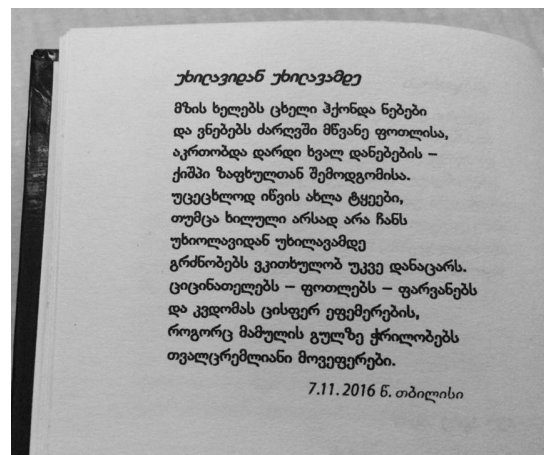 უხილავიდან უხილავამდე
მზის ხელებს ცხელი ჰქონდა ნებები
და ვნებებს ძარღვში მწვანე ფოთლისა,
აკრთობდა დარდი ხვალ დანებების –
ქიშპი ზაფხულთან შემოდგომისა.
უცეცხლოდ იწვის ახლა ტყეები,
თუმცა ხილული არსად არა ჩანს
უხიოლავიდან უხილავამდე
გრძნობებს ვკითხულობ უკვე დანაცარს.
ციცინათელებს – ფოთლებს – ფარვანებს
და კვდომას ცისფერ ეფემერების,
როგორც მამულის გულზე ჭრილობებს
თვალცრემლიანი მოვეფერები.
7.11.2016 წ. თბილისი